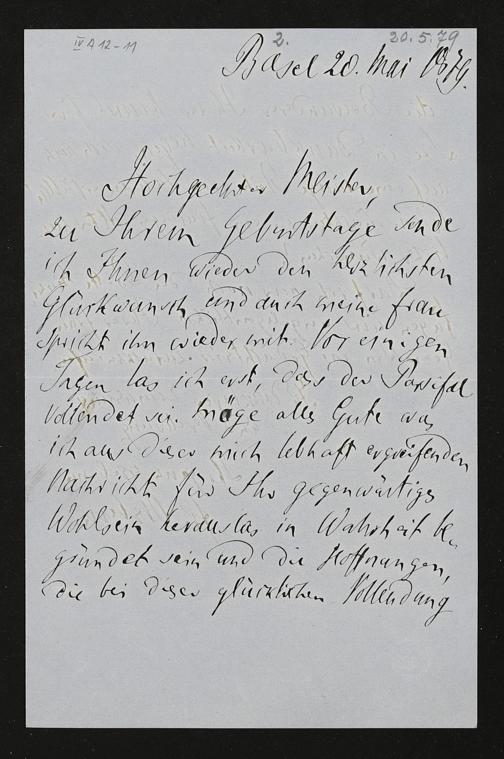 IV A 12-11
2.
20.5.79
Basel 20. Mai 1879.
Hochgeehrter Meister,
zu Ihrem Geburtstage sende
ich Ihnen wieder den herzlichsten
Glückwunsch und auch meine Frau
spricht ihn wieder mit. Vor einigen
Tagen las ich erst, dass der Parsifal
vollendet sei. Möge alles Gute was
ich aus dieser mich lebhaft ergreifenden
Nachricht für Ihr gegenwärtiges
Wohlsein herauslas in Wahrheit be-
gründet sein und die Hoffnungen,
die bei dieser glücklichen Vollendung